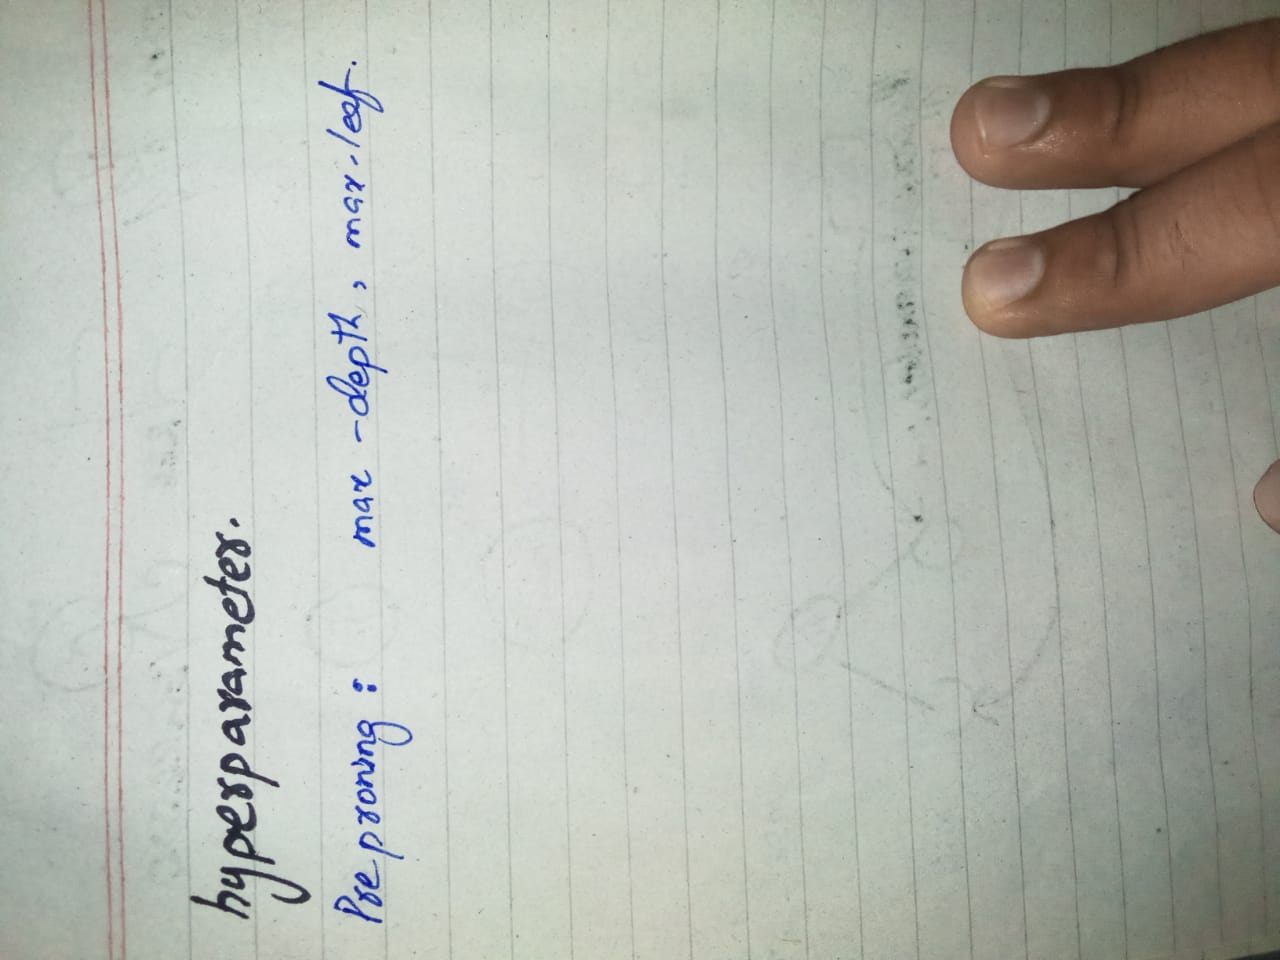 hyperparameter.
Pre proning : max - depth, max - leaf.